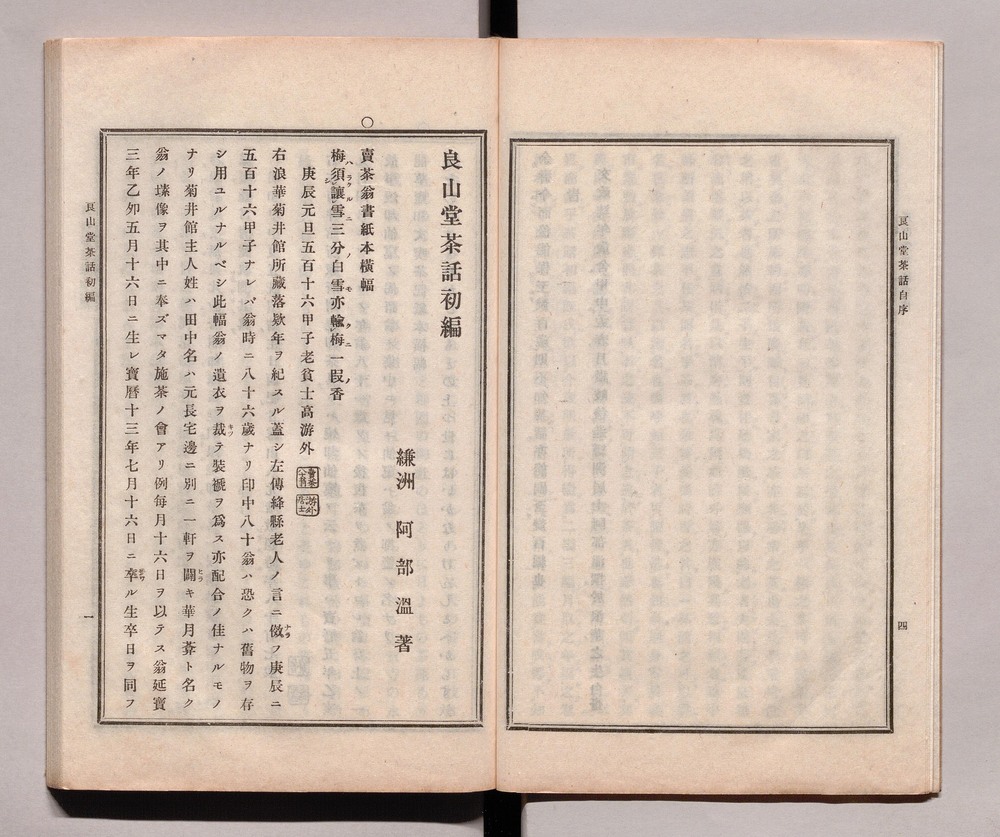 良山堂茶話自序
四
良山堂茶話初編
縑洲 阿部溫著
○
賣茶翁書紙本橫幅
梅須讓雪三分白雪亦輸梅一段香
庚辰元旦五百十六甲子老貧士高游外
右浪華菊井館所藏落欵年ヲ紀スル蓋シ左傳絳縣老人ノ言ニ倣フ庚辰ニ
五百十六甲子ナレバ翁時ニ八十六歲ナリ印中八十翁ハ恐クハ舊物ヲ存
シ用ユルナルベシ此幅翁ノ遺衣ヲ裁テ裝褫ヲ爲ス亦配合ノ佳ナルモノ
ナリ菊井館主人姓ハ田中名ハ元長宅邊ニ別ニ一軒ヲ闢キ華月菴ト名ク
翁ノ塐像ヲ其中ニ奉ズマタ施茶ノ會アリ例每月十六日ヲ以テス翁延寶
三年乙夘五月十六日ニ生レ寶曆十三年七月十六日ニ卒ル生卒日ヲ同フ
良山堂茶話初編
一